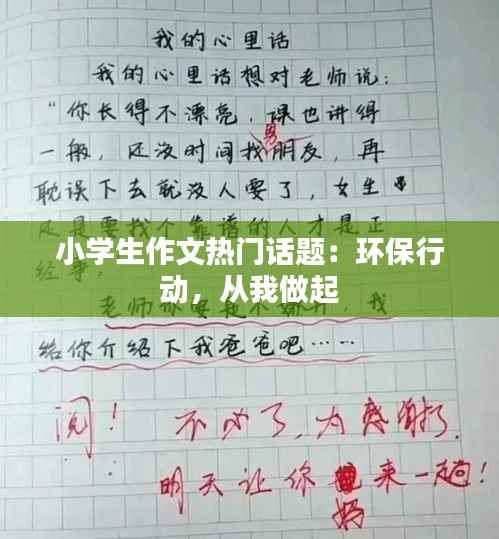 我的心里话
我的心里话想对老师说：
“你长得不漂亮，课也讲得
男
一般，还没时间找朋友，再
耽误下去就没人要了，女生
是要找个靠谱的人才是正
小学生作文热门话题：环保行
动，从我做起
经事
老师你要是不嫌弃，我
给你介绍下我爸爸吧……
阅！ 不必了，为感谢
明天让你 来一趟！
妈